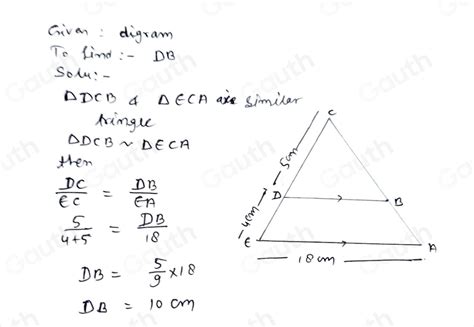 Given : digram
To find :- DB
Solu :-
△DCB & △ECA are similar
tringle
△DCB ~ △ECA
then
DC/EC = DB/EA
5/4+5 = DB/18
DB = 5/9 × 18
DB = 10 cm
C
5cm
D
B
4cm
E
A
18 cm
Gauth